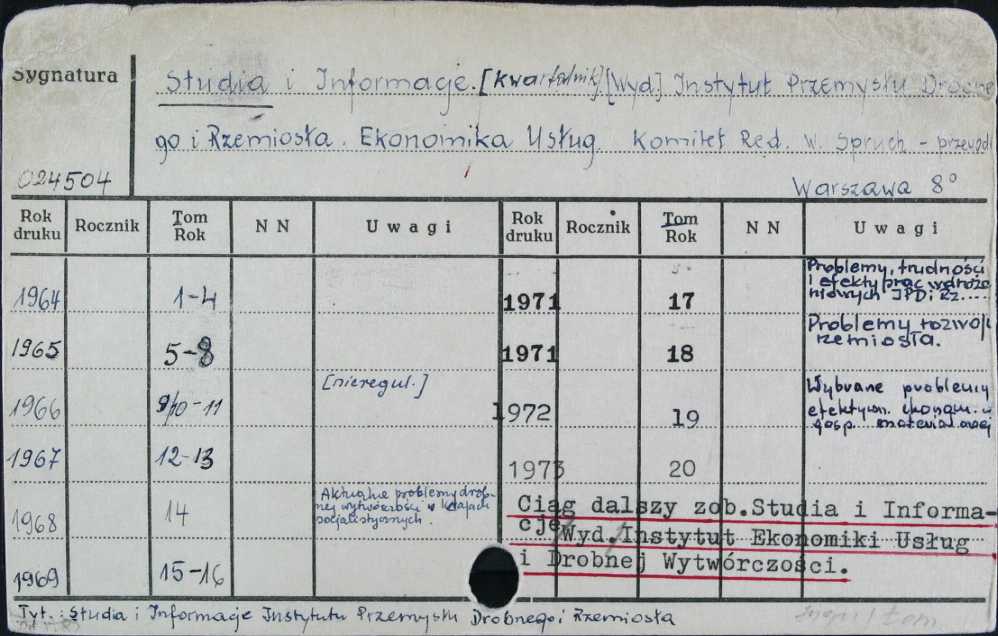 Sygnatura
Studia i Informacje. [kwartalnik]. [Wyd] Instytut Przemysłu Drobne
go i Rzemiosła. Ekonomika Usług. Komitet Red. W. Spruch - przewod
024504
Warszawa 8°
Rok druku Rocznik Tom Rok NN Uwagi Rok druku Rocznik Tom Rok NN Uwagi
1964 1-4 1971 17 Problemy, trudności
i efekty prac wdroże
niowych IPD i Rz....
1965 5-8 1971 18 Problemy rozwoju
rzemiosła.
1966 9/10-11 [nieregul.] 1972 19 Wybrane problemy
efektywn. ekonom. w
gosp. materiałowej
1967 12-13 1973 20
1968 14 Aktualne problemy drob-
nej wytwórczości w krajach
socjalistycznych.
Ciąg dalszy zob. Studia i Informa-
cje, Wyd. Instytut Ekonomiki Usług
i Drobnej Wytwórczości.
1969 15-16
Tyt.: Studia i Informacje Instytutu Przemysłu Drobnego i Rzemiosła